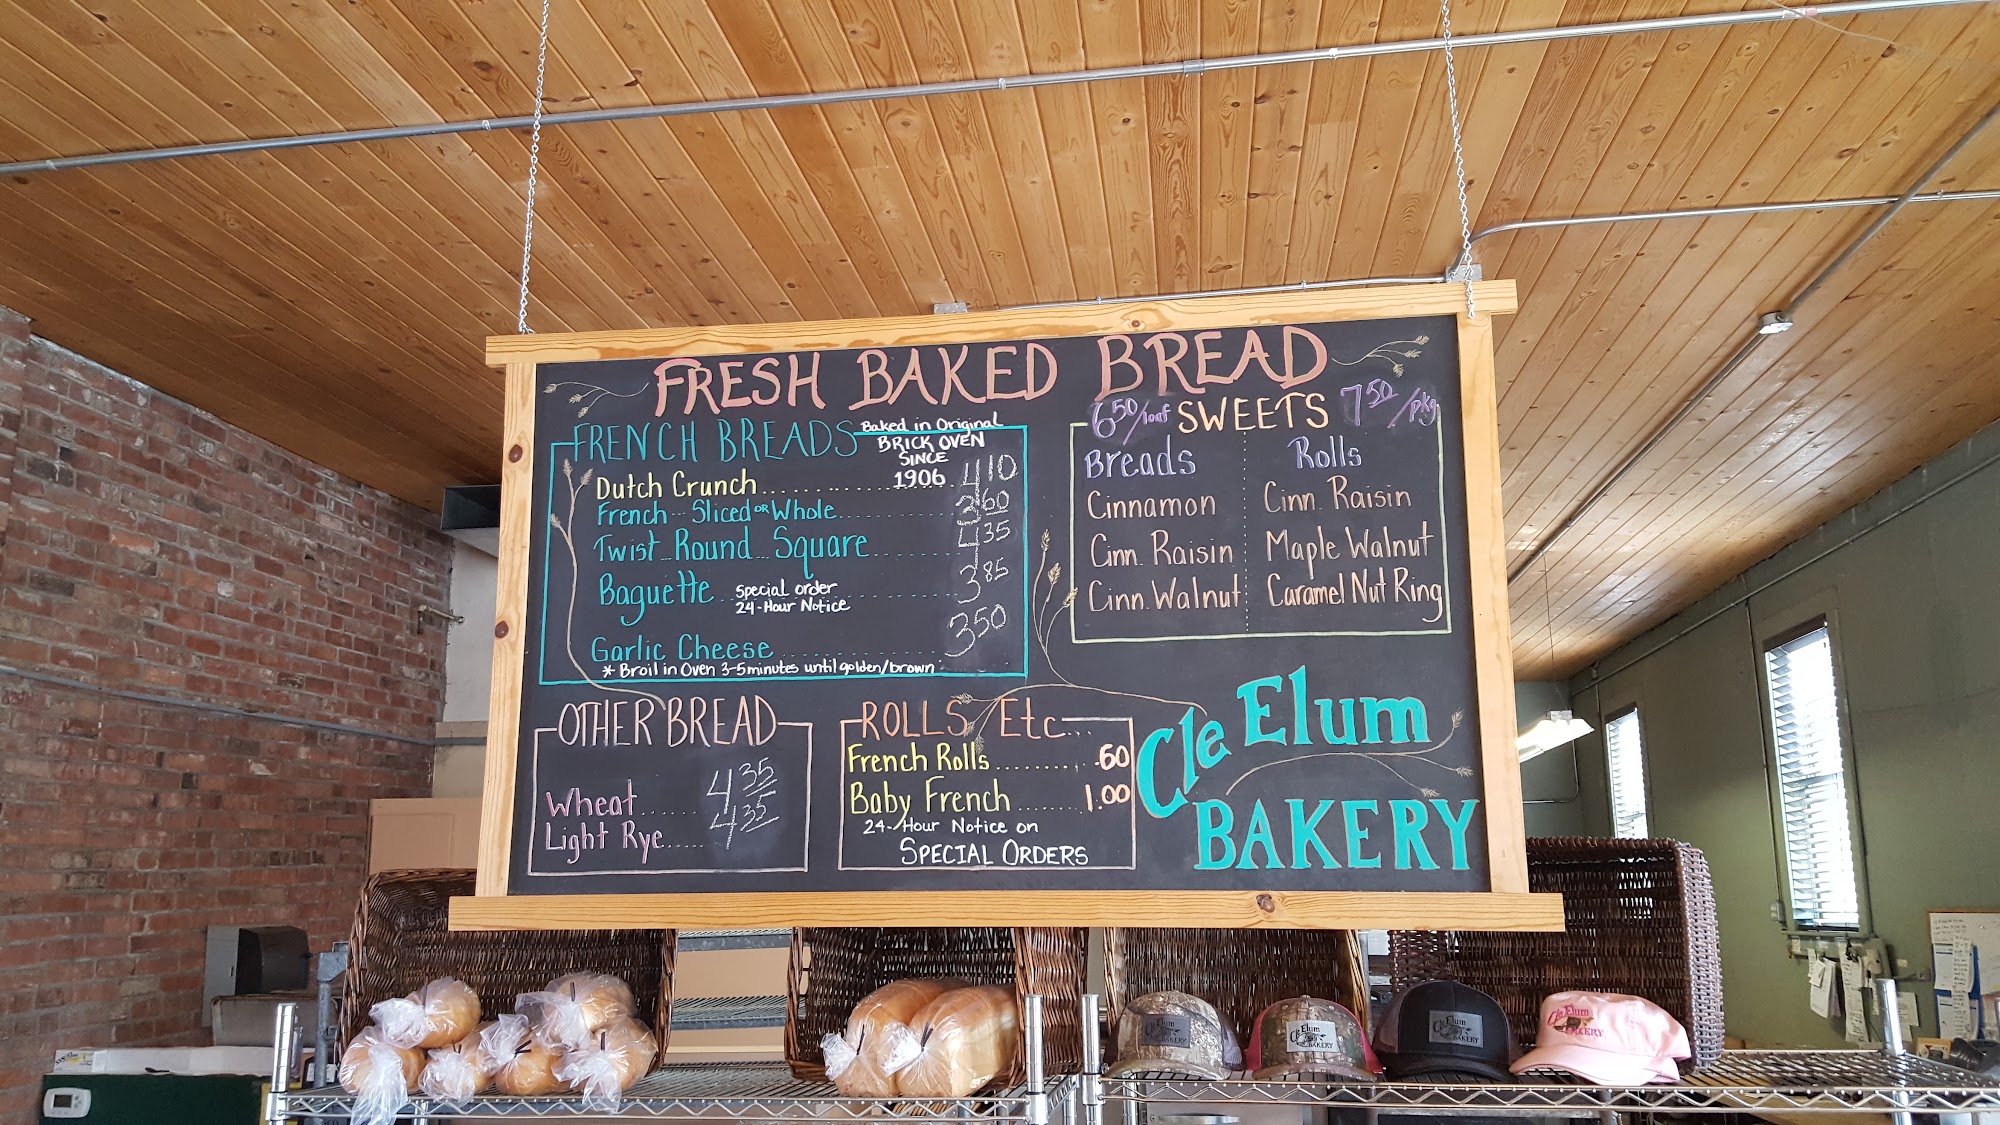 FRESH BAKED BREAD
FRENCH BREADS
Baked in Original
BRICK OVEN
SINCE
1906
Dutch Crunch 4.10
French Sliced OR Whole 3.60
Twist Round Square 4.35
Baguette Special order 3.85
24-Hour Notice
Garlic Cheese 3.50
* Broil in Oven 3-5 minutes until golden/brown
6.50/loaf SWEETS 7.50/pkg
Breads
Cinnamon
Cinn. Raisin
Cinn. Walnut
Rolls
Cinn. Raisin
Maple Walnut
Caramel Nut Ring
OTHER BREAD
Wheat 4.35
Light Rye 4.35
ROLLS Etc...
French Rolls .60
Baby French 1.00
24-Hour Notice on
SPECIAL ORDERS
Cle Elum
BAKERY
Cle Elum
BAKERY
Cle Elum
BAKERY
Cle Elum
BAKERY